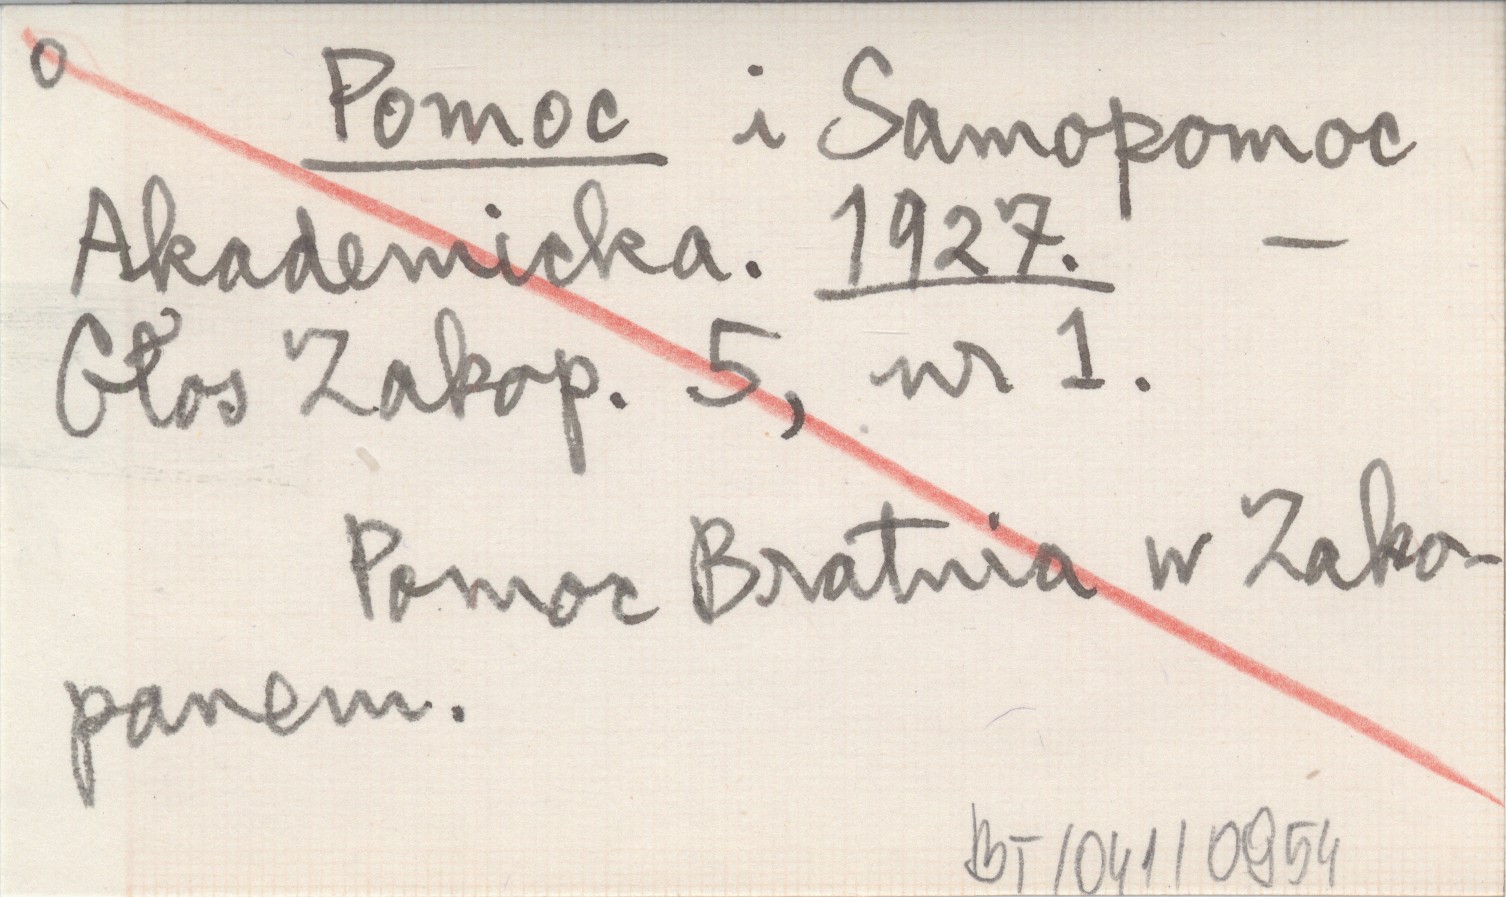 o Pomoc i Samopomoc
Akademicka. 1927. —
Głos Zakop. 5, nr 1.
Pomoc Bratnia w Zako-
panem.
BT/041/0954